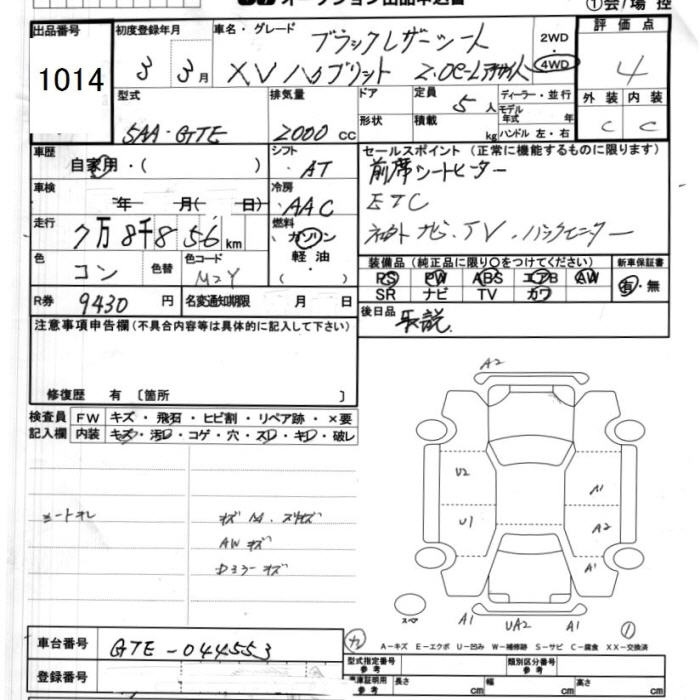 オークション出品申込書 ①会/場 控
出品番号 初度登録年月 車名・グレード ブラックレザーシート 2WD 評価点
1014 3 3月 XV ハイブリット 2.0e-Lアイサイト 4WD 4
型式 排気量 ドア 定員 ディーラー・並行 外装 内装
5AA-GTE 2000cc 5人 モデル年式 年
形状 積載 kg ハンドル 左・右 C C
車歴 シフト セールスポイント(正常に機能するものに限ります)
自家用・( ) AT 前席シートヒーター
車検 年 月( 日) 冷房 AAC ETC
走行 7万8千856km 燃料 ガソリン 軽油 ・( ) ナビ・TV・バックモニター
色 色替 色コード 装備品(純正品に限り○をつけてください) 新車保証書
コン M2Y PS PW ABS エアB AW 有・無
R券 9430円 名変通知期限 月 日 SR ナビ TV カワ
注意事項申告欄(不具合内容等は具体的に記入して下さい) 後日品 取説
修復歴 有〔箇所 〕
検査員 FW キズ・飛石・ヒビ割・リペア跡・×要
記入欄 内装 キズ・汚レ・コゲ・穴・スレ・キレ・破レ
A2
U2 A1
U1 A2
A1
シートスレ キズ A. スリキズ
AW キズ
Dミラーキズ
スペア A1 UA2 A1 ①
車台番号 GTE-044553
A-キズ E-エクボ U-凹み W-補修跡 S-サビ C-腐食 XX-交換済
登録番号 型式指定番号 参考 類別区分番号 参考
車庫証明用 参考 長さ cm 幅 cm 高さ cm